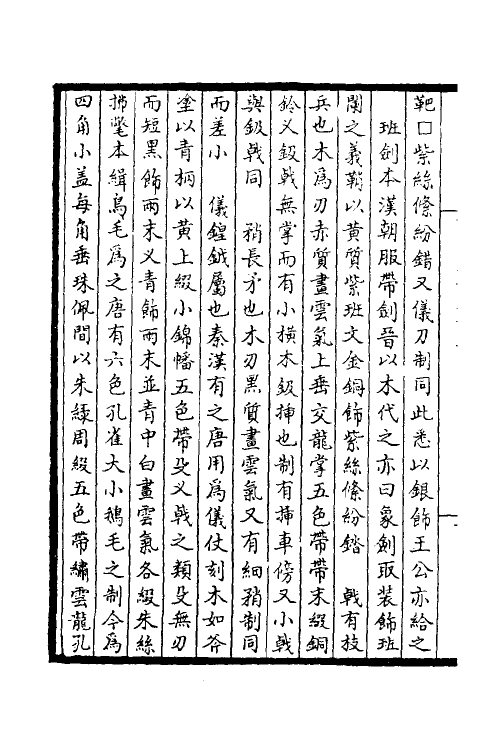 靶口紫絲絛紛錯又儀刀制同此悉以銀飾王公亦給之
班劍本漢朝服帶劍晉以木代之亦曰象劍取裝飾班
闌之義鞘以黃質紫班文金銅飾紫絲絛紛錔　戟有枝
兵也木爲刃赤質畫雲氣上垂交龍掌五色帶帶末綴銅
鈴义鈒戟無掌而有小橫木鈒揷也制有揷車傍又小戟
與鈒戟同　矟長矛也木刃黑質畫雲氣又有細矟制同
而差小　儀鍠鉞屬也秦漢有之唐用爲儀仗刻木如斧
塗以青柄以黃上綴小錦幡五色帶殳义戟之類殳無刃
而短黑飾兩末义青飾兩末並青中白畫雲氣各綴朱絲
拂氅本緝鳥毛爲之唐有六色孔雀大小鵝毛之制今爲
四角小蓋每角垂珠佩間以朱綠周綴五色帶繡雲龍孔